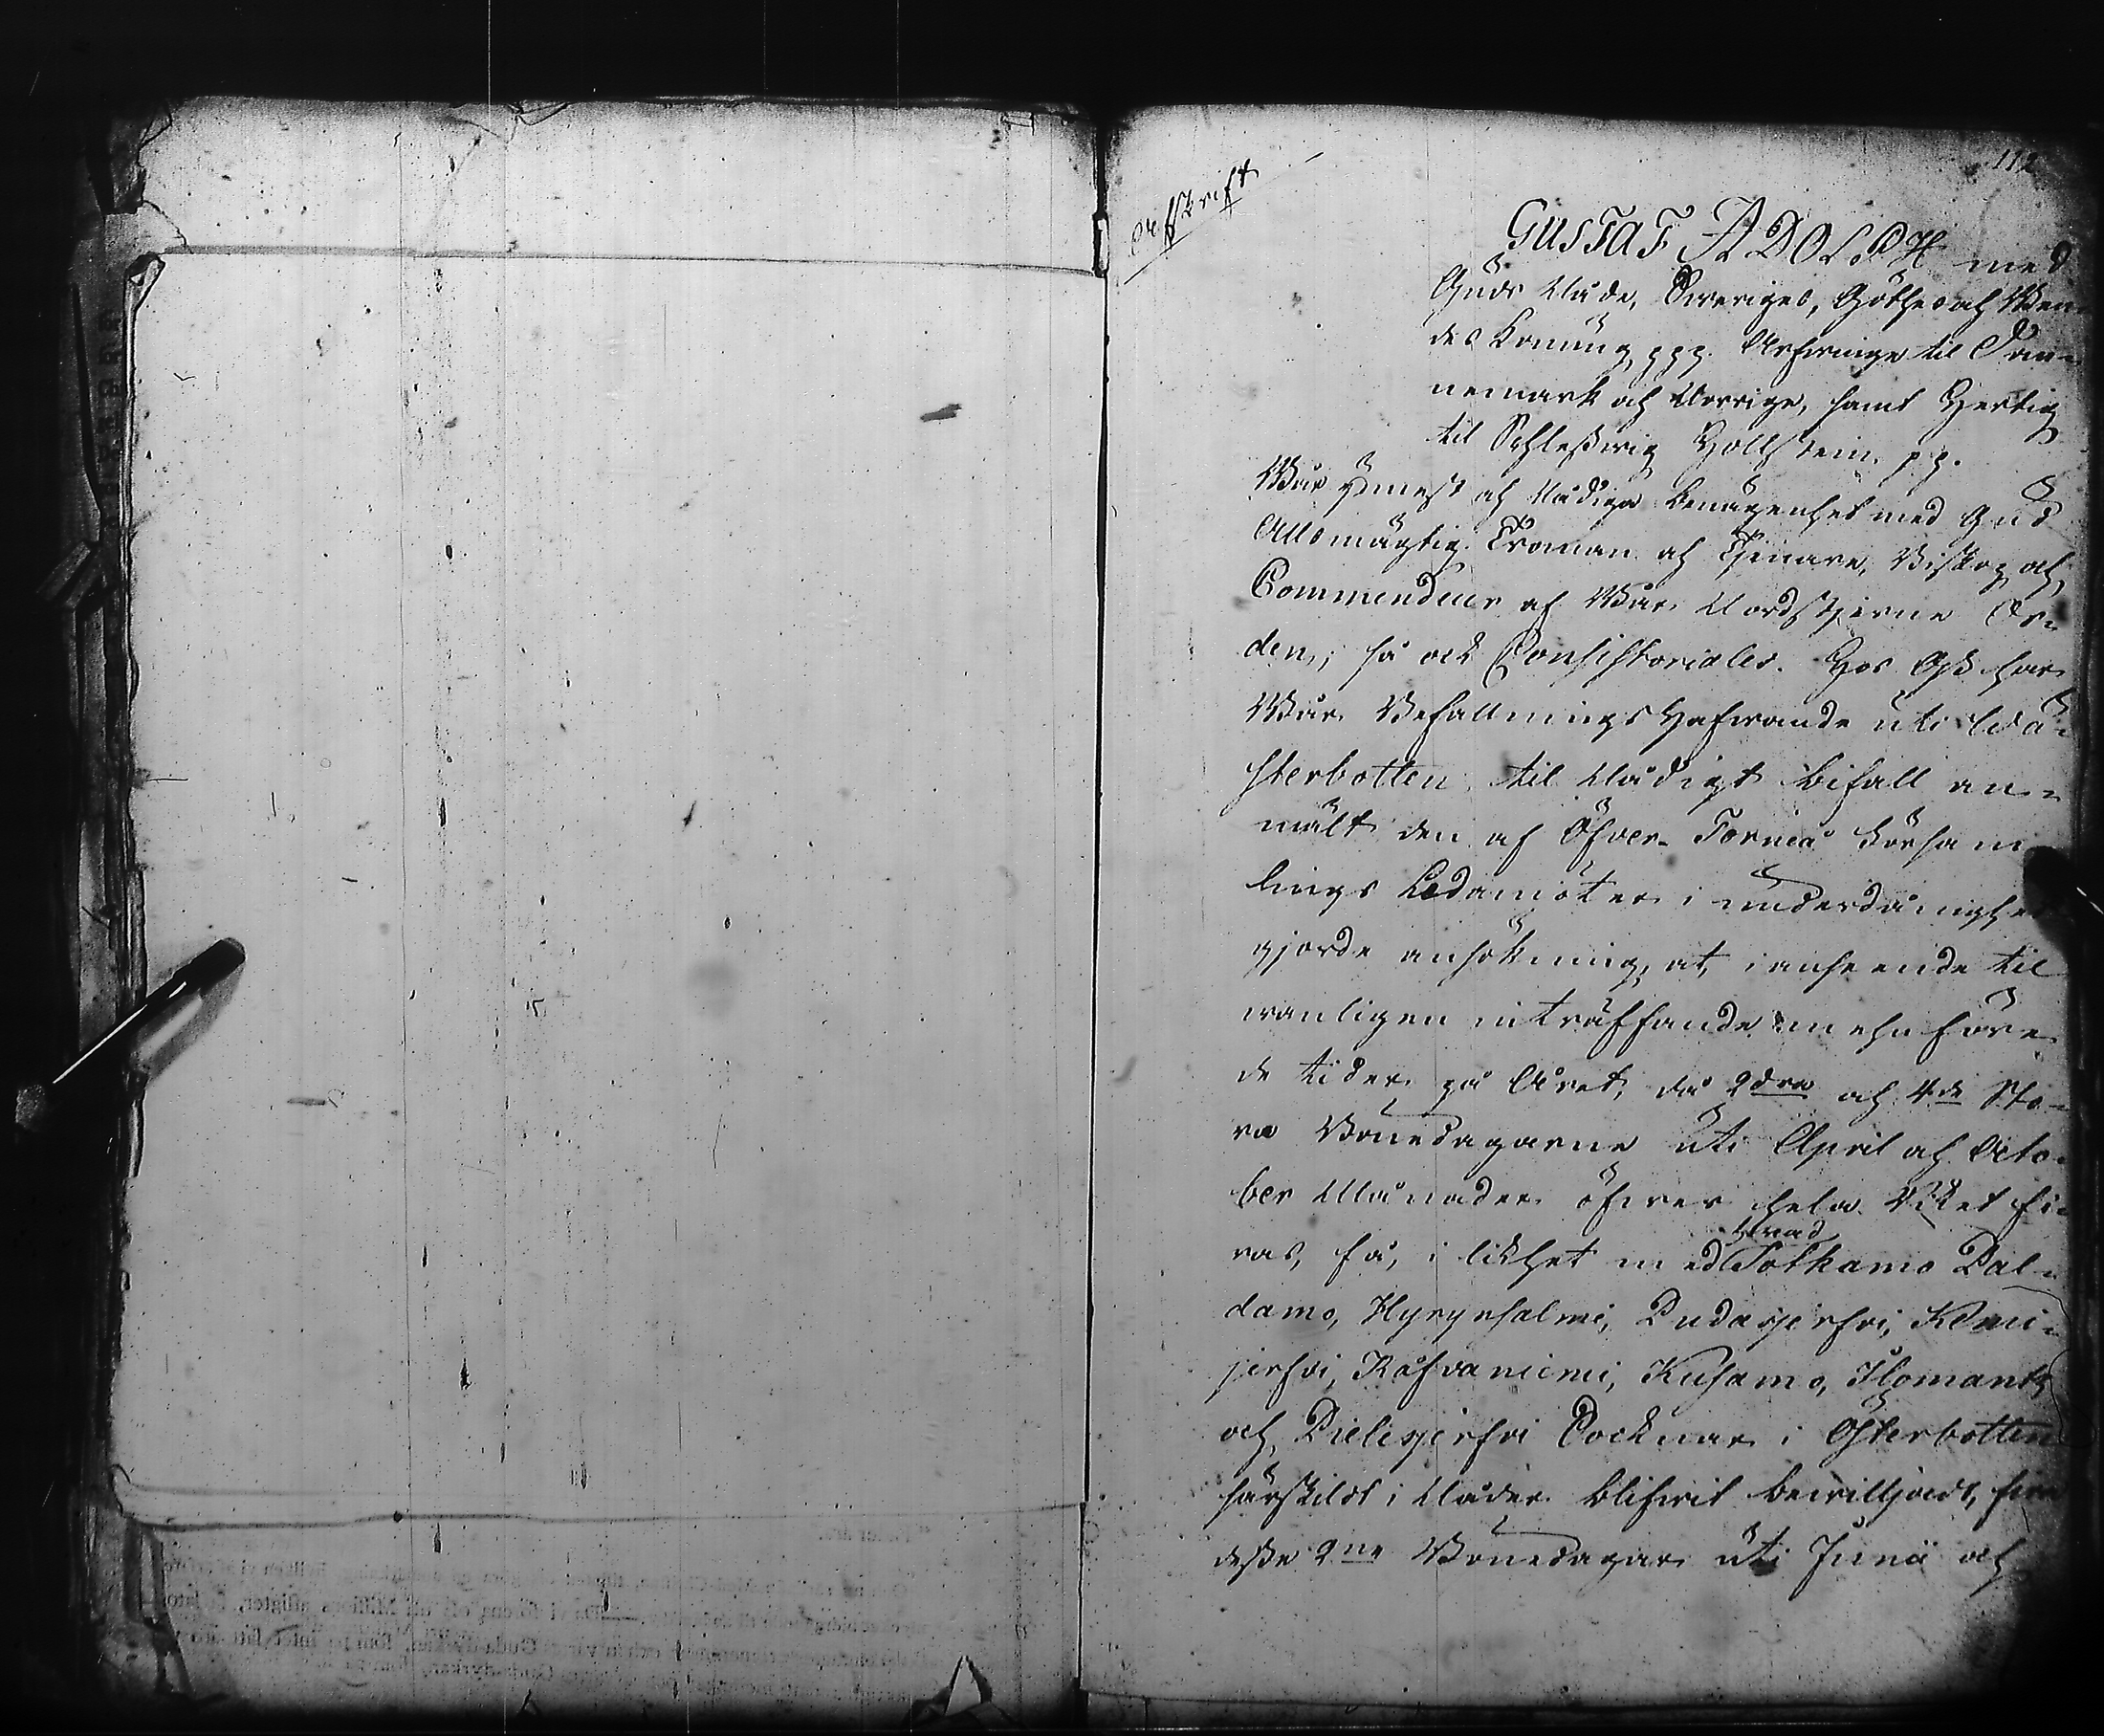 112
Afskrift
GUSTAF ADOLPH med
Guds Nåde, Sweriges, Göthes och Wen-
des Konung ppp. Arfwinge til Dan-
nemark och Norrige, samt Hertig
til Schleßwig Hollstein pp.
Wår ynnest och Nådiga benägenhet med Gud
Allsmägtig. Troman och Tjenare, Biskop och
Commendeur af Wår Nordstjerne Or-
den, så ock Consistoriales. Hos Oß har
Wår Befallningshafwande uti Wä-
sterbotten til Nådigt bifall an-
mält den af Öfver-Torneå Församm
lings Ledamöter i underdånighet
gjorde ansökning, at, i anseende til
wanligen inträffande menföre-
de tider på Året, då 2dra och 4de Sto-
ra Bönedagarne uti April och Octo-
ber Månader öfwer hela Riket fi-
ras, få, i likhet med hwad Sotkamo Pal-
damo, Hyrynsalmi, Pudasjerfvi, Kemi-
jerfvi, Råfvaniemi, Kusamo, Ilomants
och Pielisjerfvi Socknar i Österbotten
särskildt i Nåder blifwit bewilljadt, fira
deße 2ne Bönedagar uti Junii och